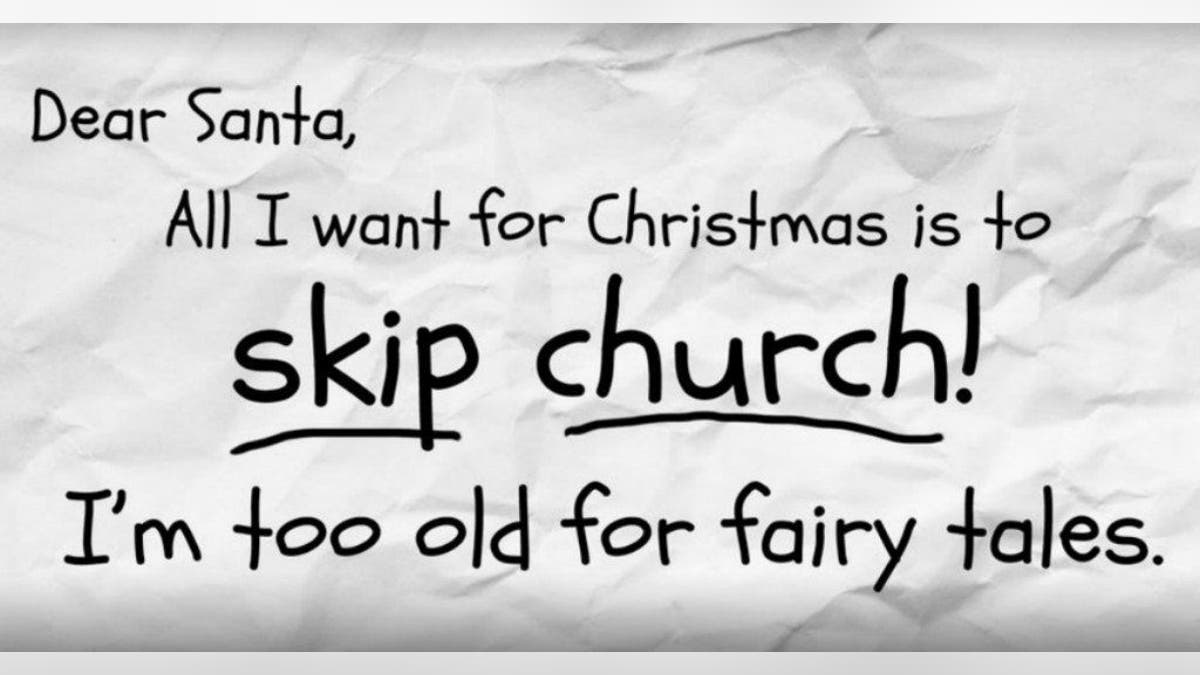 Dear Santa,
All I want for Christmas is to
skip church!
I'm too old for fairy tales.